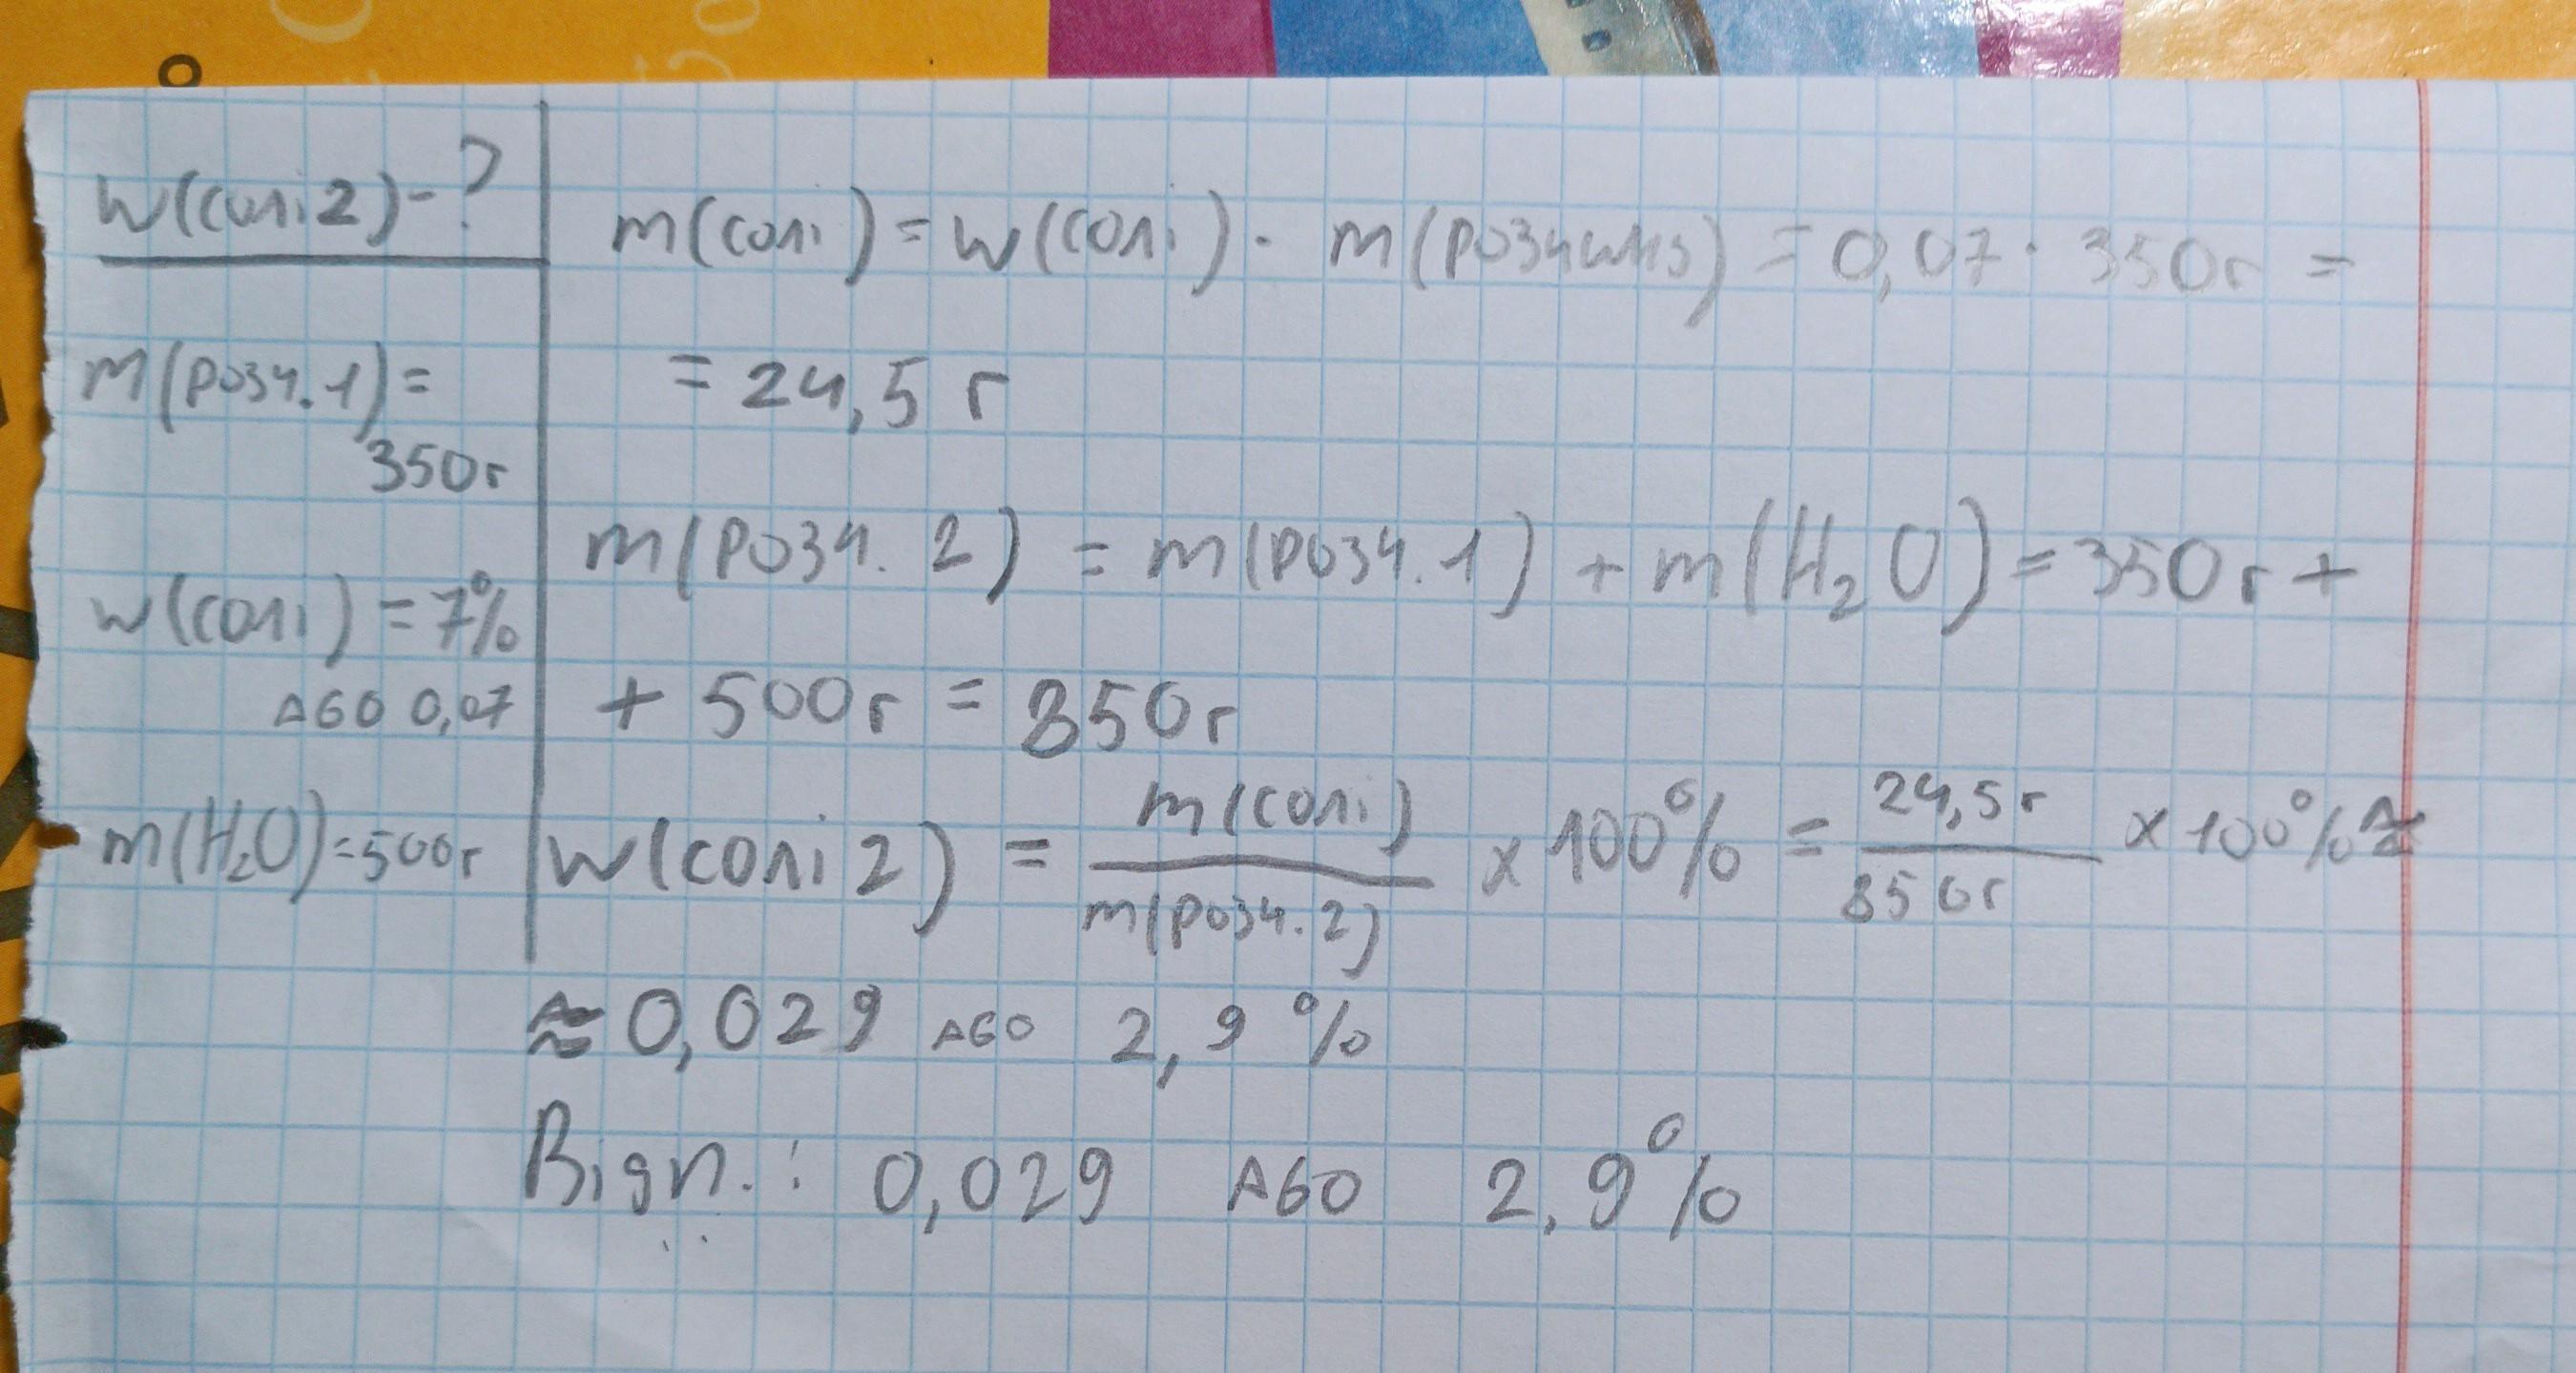 W(солі 2) - ?
m(розч. 1) =
350г
w(солі) = 7%
АБО 0,07
m(H₂O) = 500г
m(солі) = w(солі) · m(розчину) = 0,07 · 350г =
= 24,5 г
m(розч. 2) = m(розч. 1) + m(H₂O) = 350г +
+ 500г = 850г
W(солі 2) = m(солі) / m(розч. 2) x 100% = 24,5г / 850г x 100% ≈
≈ 0,029 АБО 2,9 %
Відп.: 0,029 АБО 2,9%